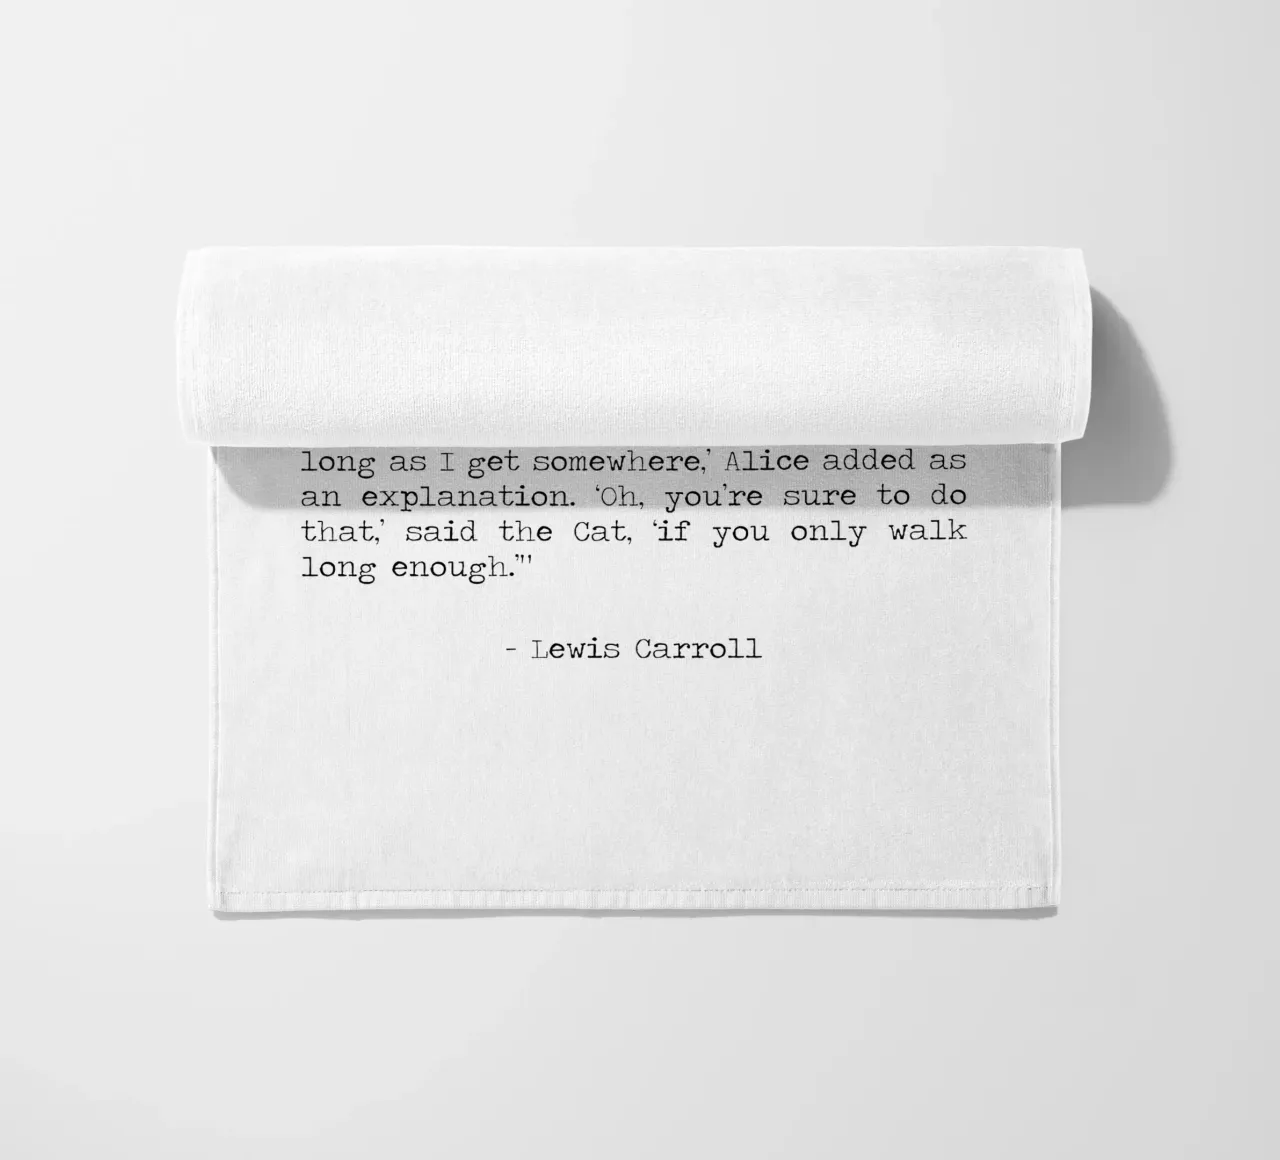 long as I get somewhere,’ Alice added as
an explanation. ‘Oh, you’re sure to do
that,’ said the Cat, ‘if you only walk
long enough.”’
- Lewis Carroll